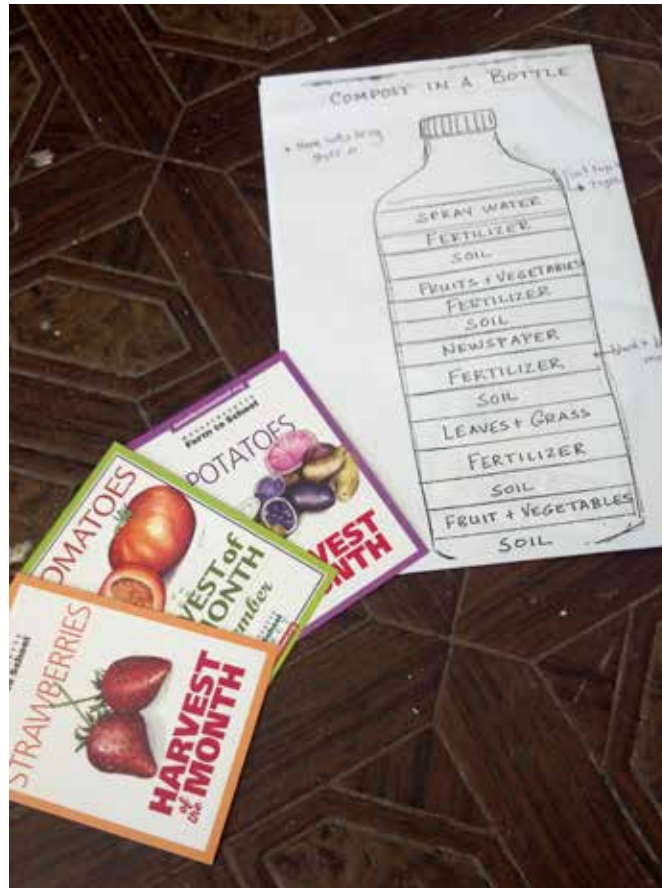 COMPOST IN A BOTTLE
SPRAY WATER
FERTILIZER
SOIL
FRUITS + VEGETABLES
FERTILIZER
SOIL
NEWSPAPER
FERTILIZER
SOIL
LEAVES + GRASS
FERTILIZER
SOIL
FRUIT + VEGETABLES
SOIL
Farm to School
POTATOES
VEST
NTH
OMATOES
VEST of
MONTH
mber
School
STRAWBERRIES
HARVEST
of the MONTH